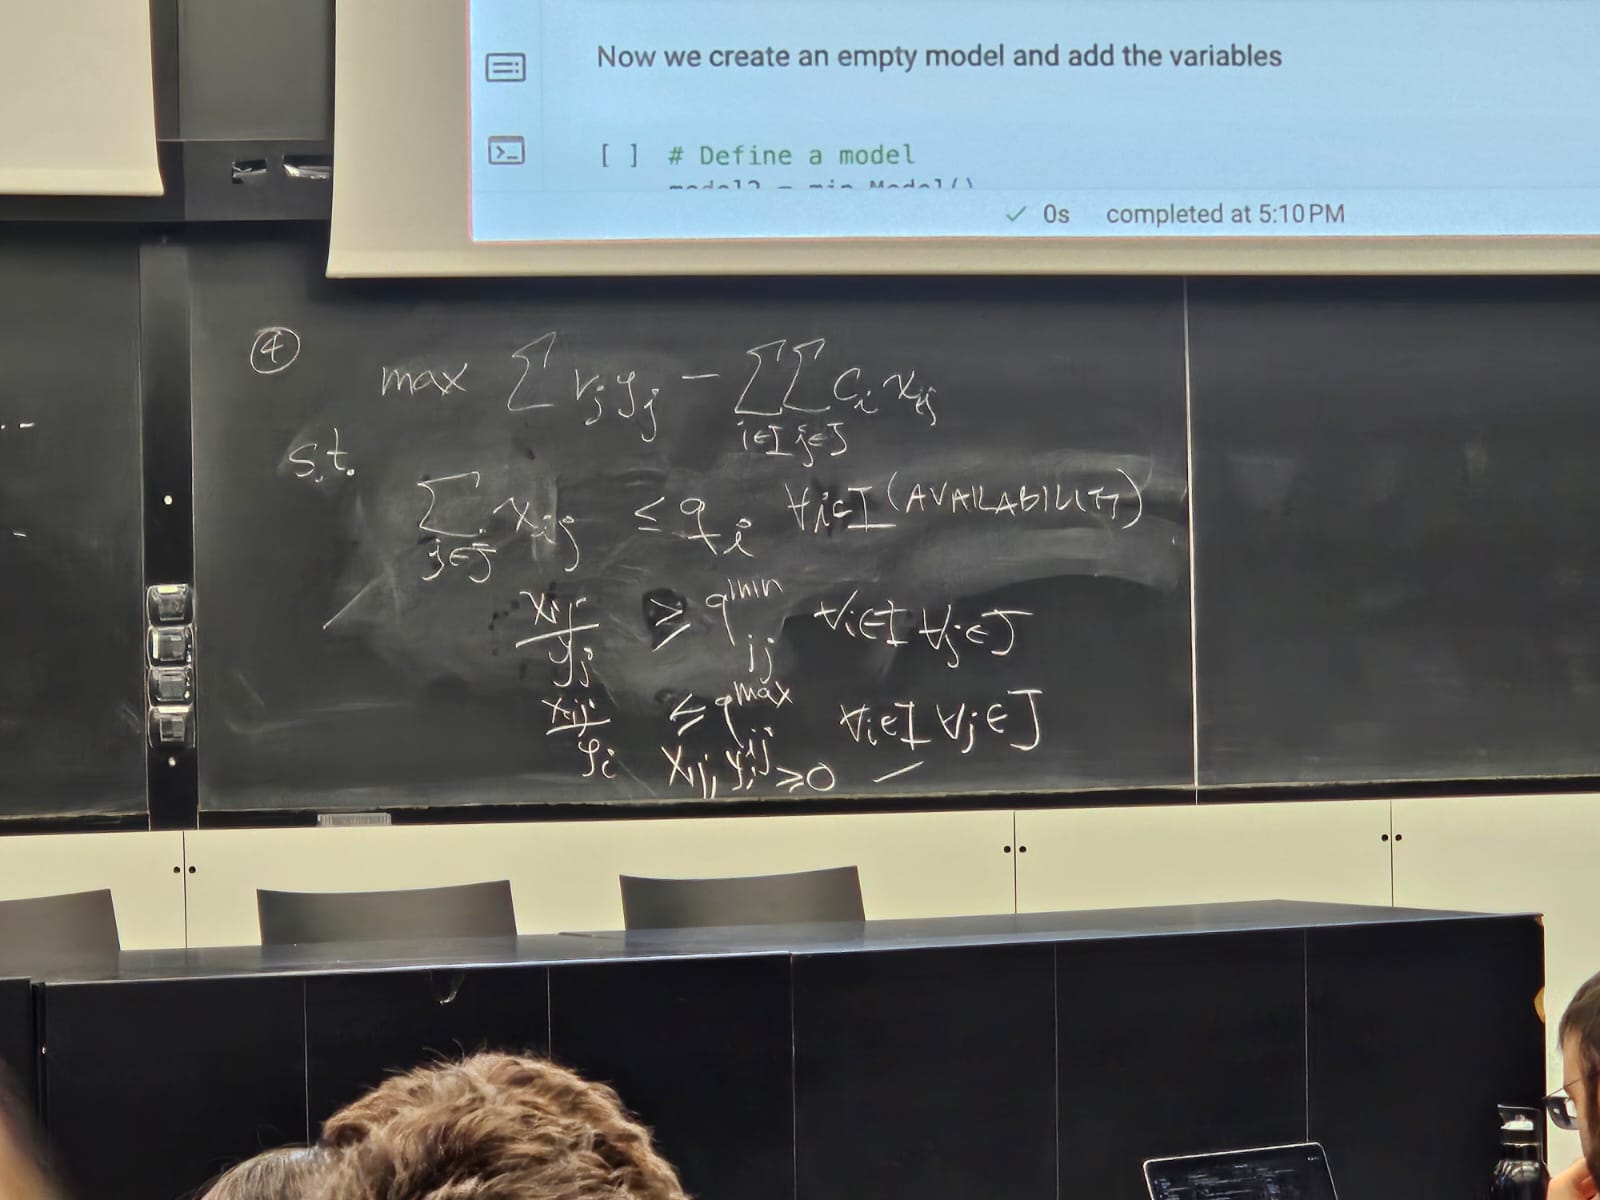 Now we create an empty model and add the variables
[ ] # Define a model
model2 = mip.Model()
✓ 0s completed at 5:10 PM
④
max ∑ rⱼ yⱼ − ∑ i∈I ∑ j∈J cᵢ xᵢⱼ
s.t.
∑ j∈J xᵢⱼ ≤ qᵢ ∀i∈I (AVAILABILITY)
xᵢⱼ / yⱼ ≥ q^min ij ∀i∈I ∀j∈J
xᵢⱼ / yⱼ ≤ q^max ij ∀i∈I ∀j∈J
xᵢⱼ, yⱼ ≥ 0 —